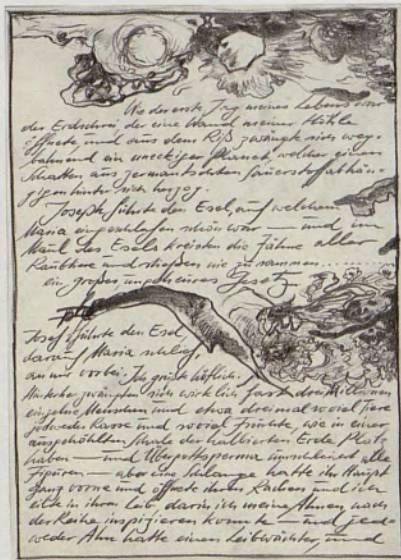 Wo der erste Tag meines Lebens war
der Erdschrei der eine Wand meiner Höhle
öffnete, und aus dem Riß zwängte sich weg-
bahnend ein uneckiger Planet, welcher einen
Schatten aus zermantschten Sauerstoffabhän-
gigen hinter sich herzog.
Joseph führte den Esel, auf welchem
Maria eingeschlafen schön war — und im
Maul des Esels kreisten die Zähne aller
Raubtiere und stießen nie zusammen.........
ein großes ungeheures Gesetz
Josef führte den Esel
darauf Maria schlief,
an mir vorbei. Ich grüßte höflich.
zwängten sich wirklich fast drei Millionen
einzelne Menschen und etwa dreimal soviel Tiere
jedweder Rasse und soviel Früchte, wie in einer
ausgehöhlten Schale der halbierten Erde Platz
haben — und Übergottsperma umschleimt alle
Figuren — aber eine Schlange hatte ihr Haupt
ganz vorne und öffnete ihren Rachen und ich
eilte in ihren Leib darin ich meine Ahnen nach
der Reihe inspizieren konnte — und jed-
weder Ahn hatte einen Leibwächter, und